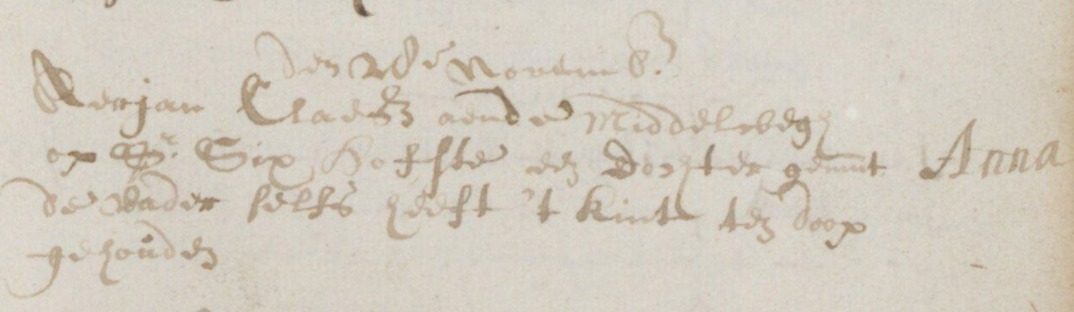 den 28e Novemb.
Aerjan Claesz aende Middelwegh
op Sr. Six hofste een dochter genamt Anna
de vader selfs heeft 't kint ten doop
gehouden